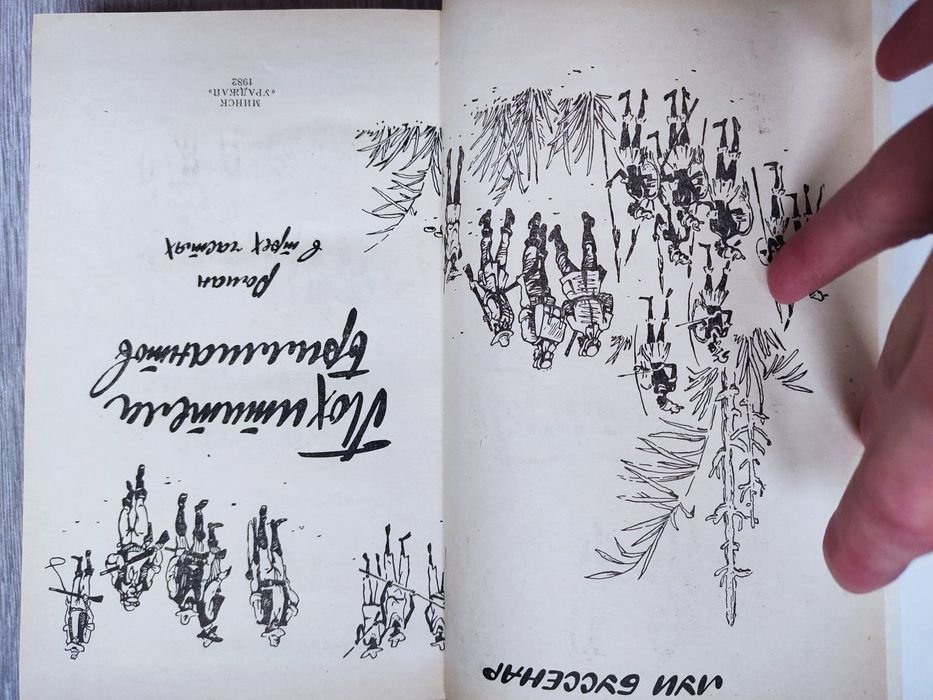 ЛУИ БУССЕНАР
Похитители
бриллиантов
роман
в трех частях
МИНСК
«УРАДЖАЙ»
1982